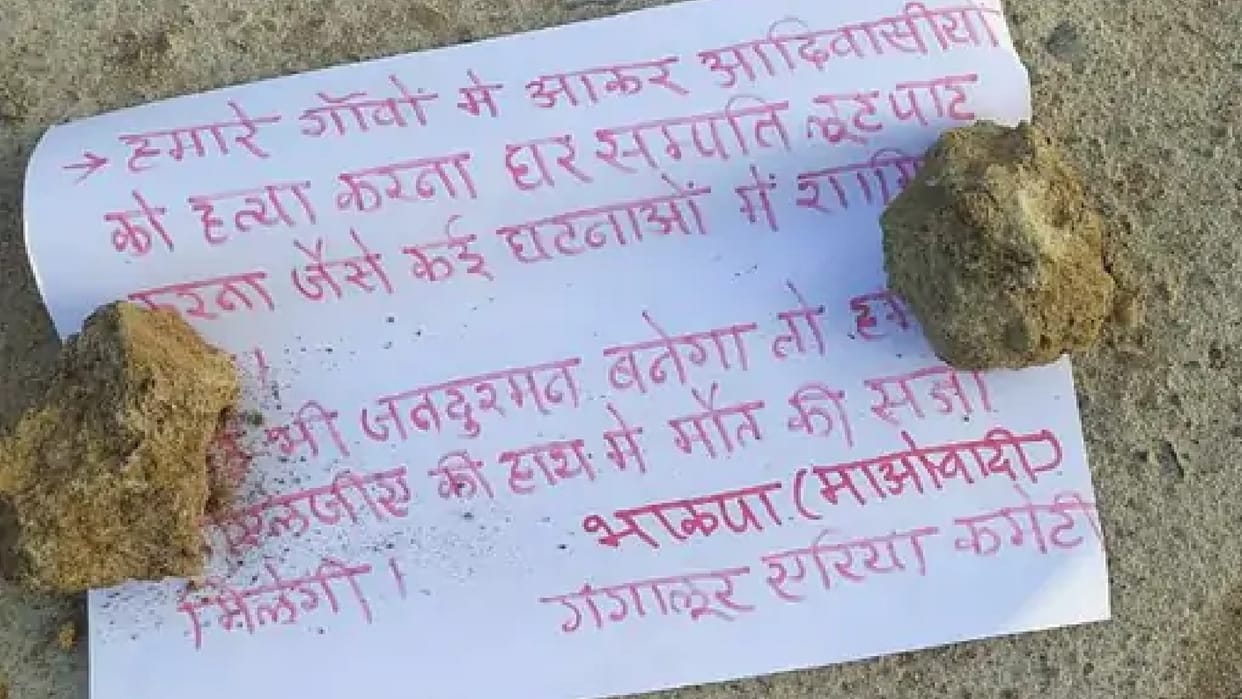 → हमारे गॉवों मे आकर आदिवासीयों
को हत्या करना घर सम्पति लूटपाट
करना जैसे कई घटनाओं में
।
भी जनदुश्मन बनेगा तो
की हाथ मे मौत की सजा
मिलेगी। भाकपा (माओवादी)
गंगालूर एरिया कमेटी